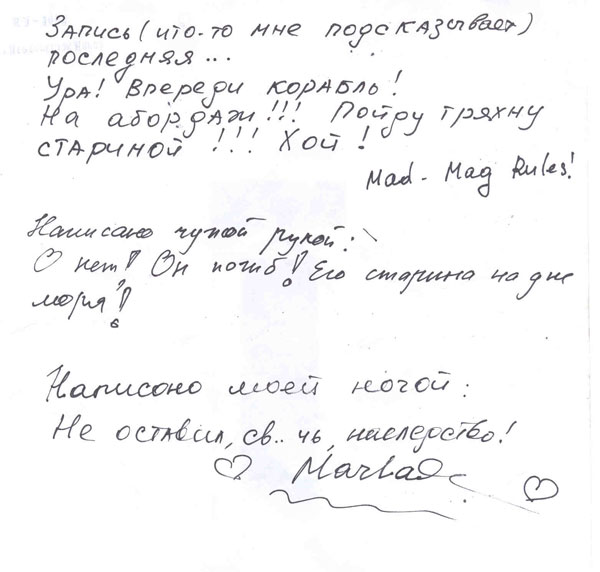 Запись (что-то мне подсказывает)
последняя...
Ура! Впереди корабль!
На абордаж!!! Пойду тряхну
стариной!!! Хой!
Mad-Mag Rules!
Написано чужой рукой:
О нет! Он погиб! Его старина на дне
моря!
Написоно моей ногой:
Не оставил, св..чь, наследство!